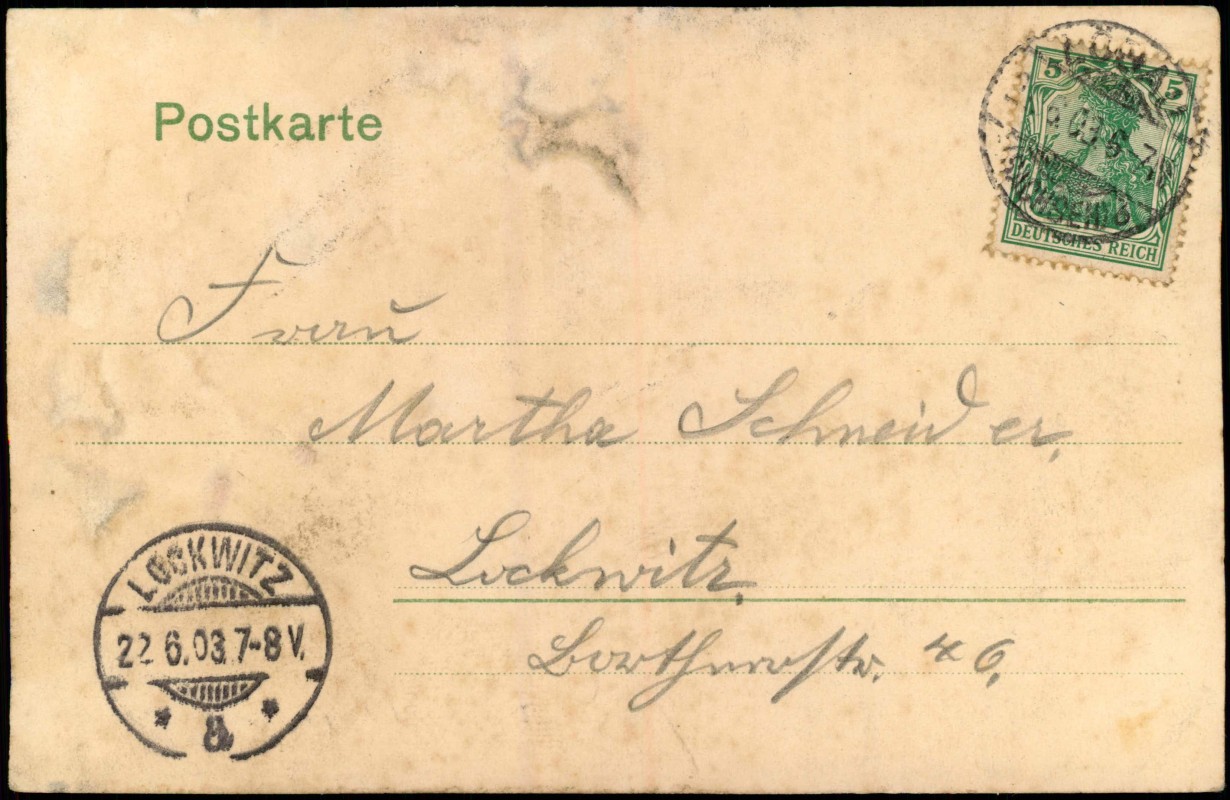 Postkarte
5 5
DEUTSCHES REICH
Frau
Martha Schneider,
Lockwitz,
46,
LOCKWITZ
22.6.03.7-8V.
* a *